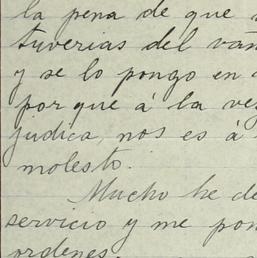 la pena de que
tuverias del van
y se lo pongo en
porque á la vez
judica, nos es á
molesto.
Mucho he de
servicio y me pon
ordenes.